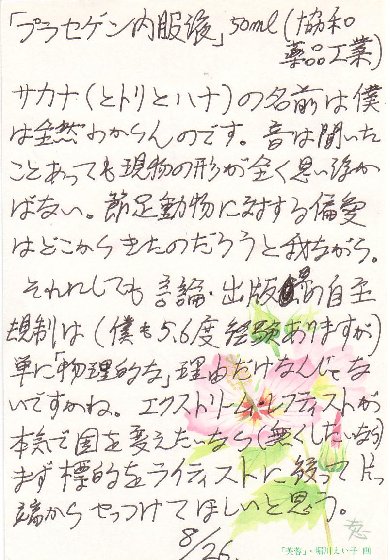 「プラセゲン内服液」50ml(協和
薬品工業)
サカナ(とトリとハナ)の名前は僕
は全然わからんのです。音は聞いた
ことあっても現物の形が全く思い浮か
ばない。節足動物に対する偏愛
はどこからきたのだろうと我ながら。
それにしても言論・出版の自主
規制は(僕も5,6度経験ありますが)
単に「物理的な」理由だけなんじゃな
いですかね。エクストリーム・レフティストが
本気で国を変えたいなら(無くしたいなら)
まず標的をライティストに絞って片っ
端からやっつけてほしいと思う。
8/26.
「芙蓉」・堀川えい子 画